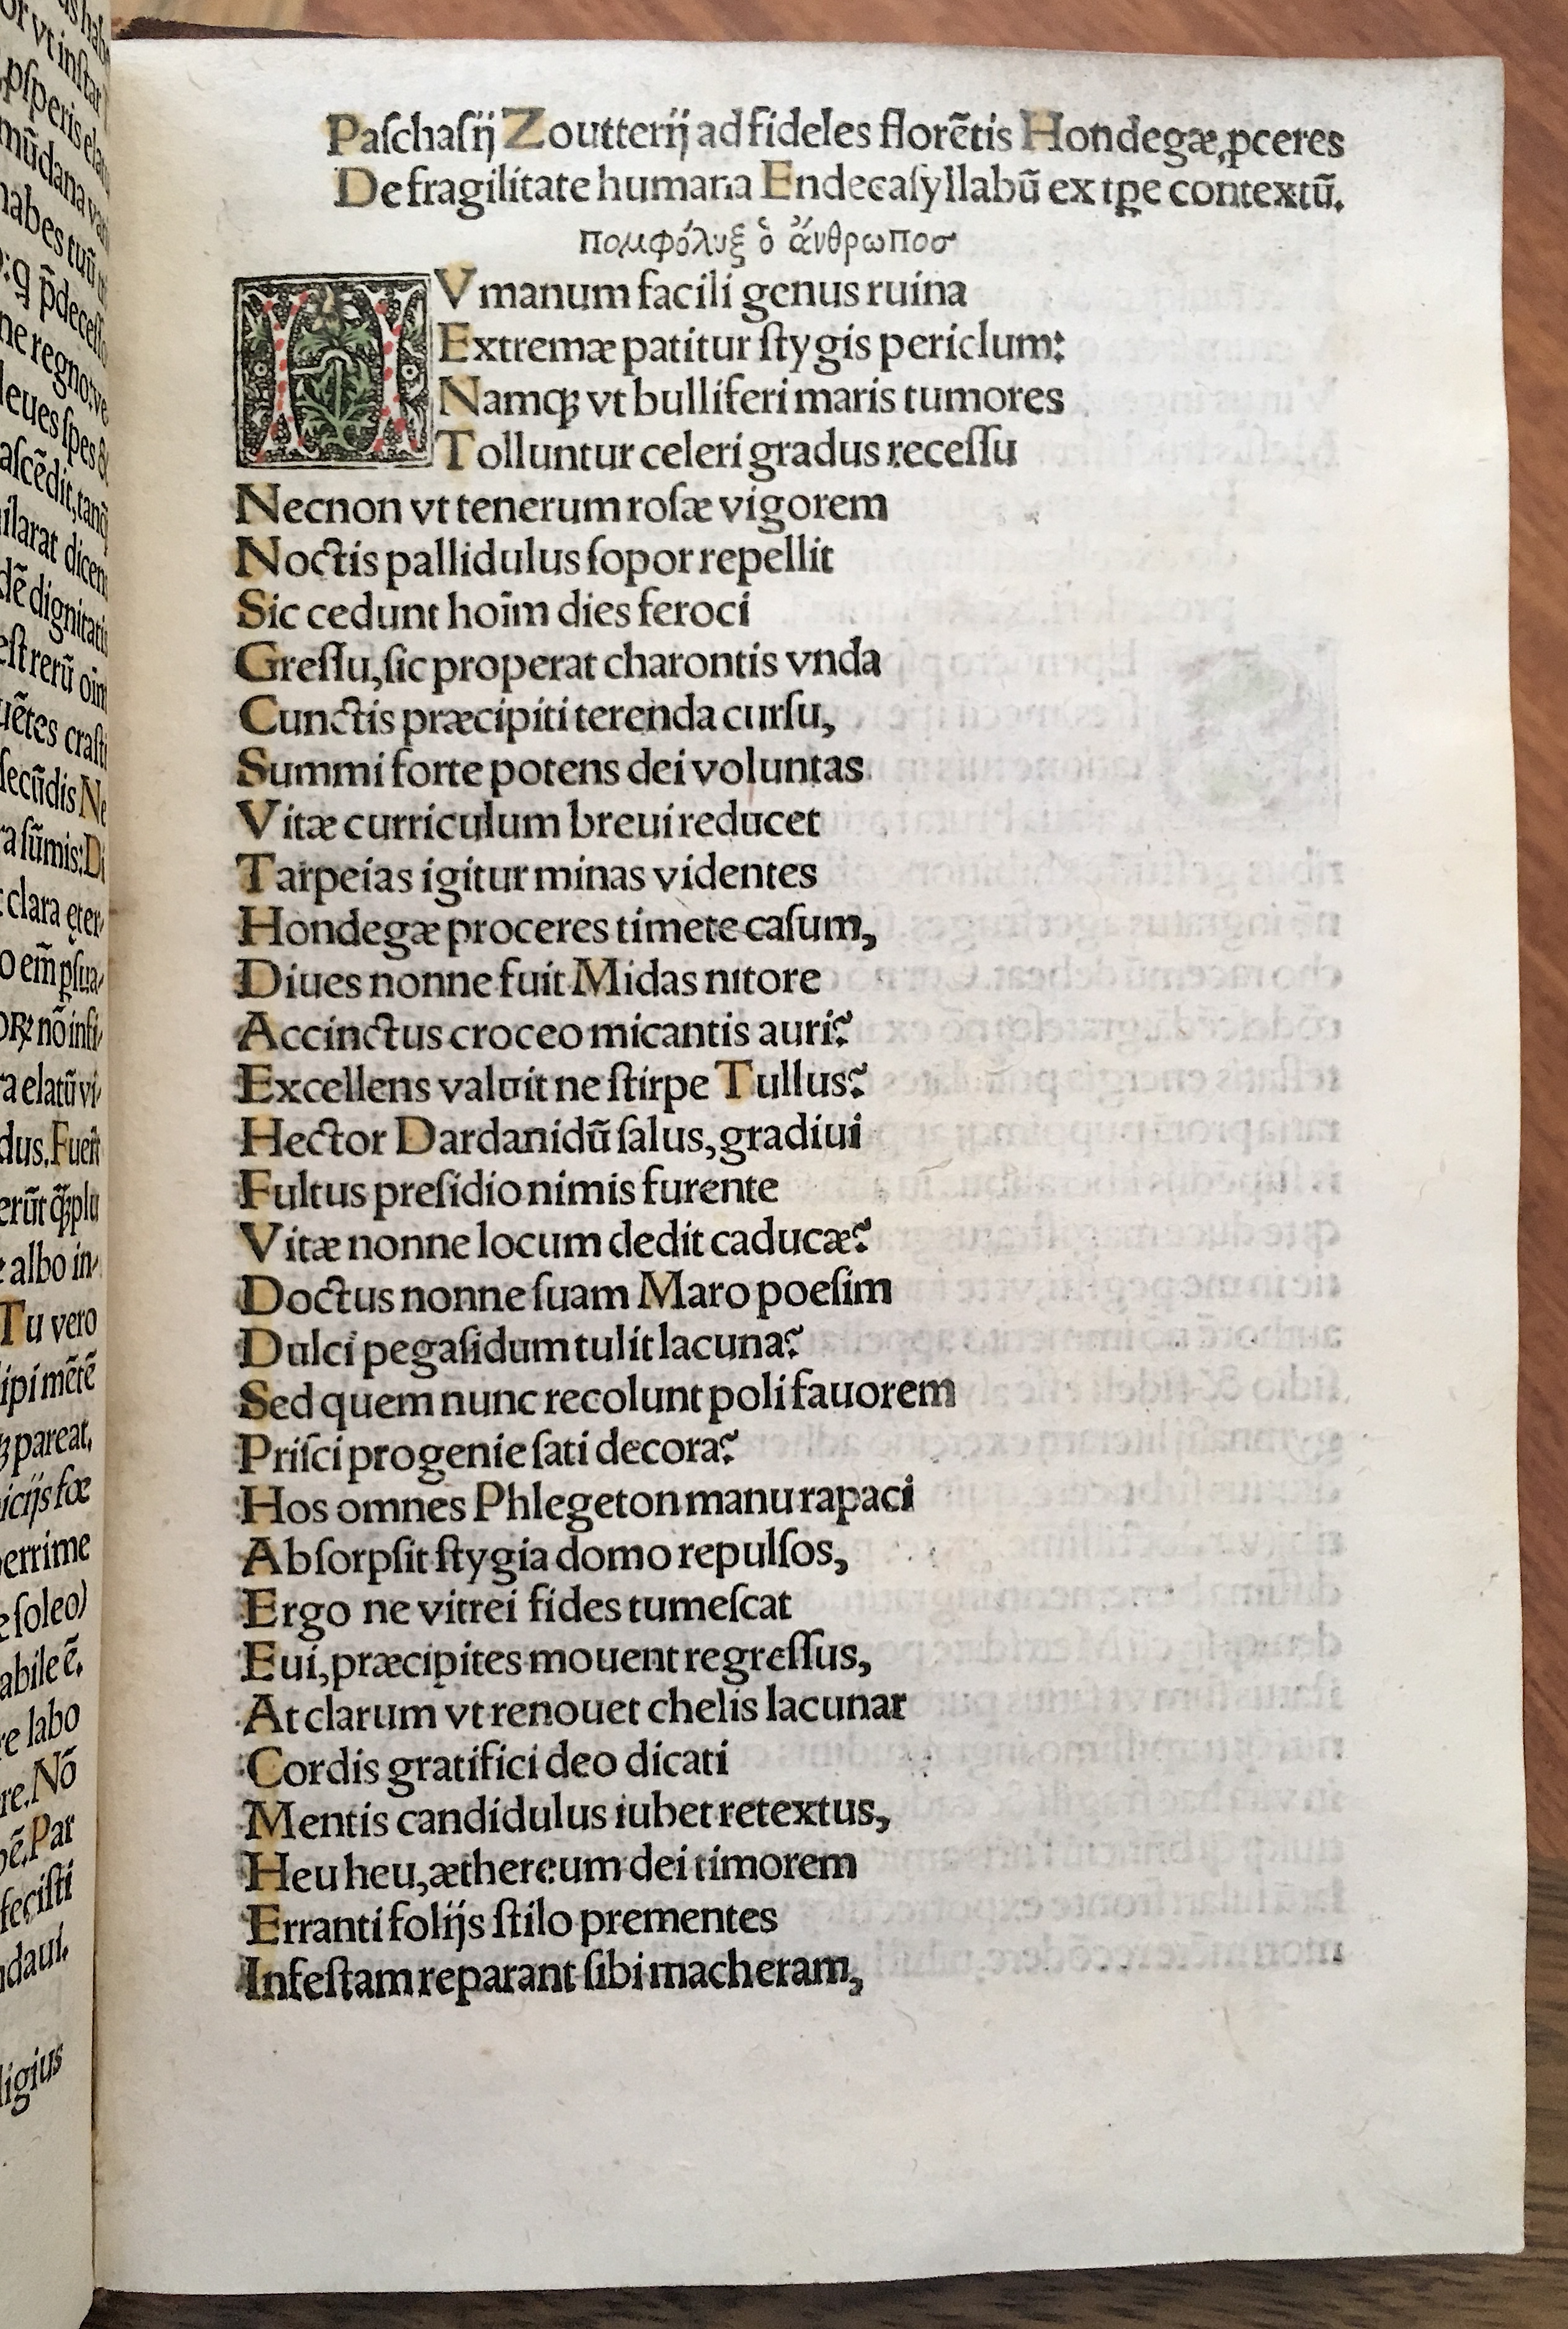 Paſchaſij Zoutterij ad fideles florētis Hondegæ ꝓceres
De fragilitate humana Endecaſyllabū ex tꝑe contextū.
πομφόλυξ ὁ ἄνθρωποσ
HVmanum facili genus ruina
Extremæ patitur ſtygis periclum:
Namqꝫ vt bulliferi maris tumores
Tolluntur celeri gradus receſſu
Necnon vt tenerum roſæ vigorem
Noctis pallidulus ſopor repellit
Sic cedunt hoīm dies feroci
Greſſu, ſic properat charontis vnda
Cunctis præcipiti terenda curſu,
Summi forte potens dei voluntas
Vitæ curriculum breui reducet
Tarpeias igitur minas videntes
Hondegæ proceres timete caſum,
Diues nonne fuit Midas nitore
Accinctus croceo micantis auri?
Excellens valuit ne ſtirpe Tullus?
Hector Dardanidū ſalus, gradiui
Fultus preſidio nimis furente
Vitæ nonne locum dedit caducæ?
Doctus nonne ſuam Maro poeſim
Dulci pegaſidum tulit lacuna?
Sed quem nunc recolunt poli fauorem
Priſci progenie ſati decora?
Hos omnes Phlegeton manu rapaci
Abſorpſit ſtygia domo repulſos,
Ergo ne vitrei fides tumeſcat
Eui, præcipites mouent regreſſus,
At clarum vt renouet chelis lacunar
Cordis gratifici deo dicati
Mentis candidulus iubet retextus,
Heu heu, æthereum dei timorem
Erranti folijs ſtilo prementes
Infeſtam reparant ſibi macheram,